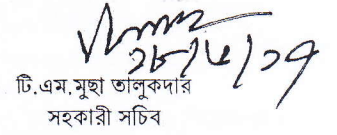 ২৮/৫/১৭
টি.এম.মুছা তালুকদার
সহকারী সচিব